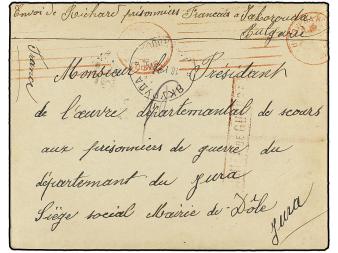 Envoi de Richard prisonniers Français a Jaborouda
Bulgarie
France
Monsieur le Président
de l'œuvre départemantal de scours
aux prisonniers de guerre du
département du Jura
Siège social Mairie de Dôle
Jura